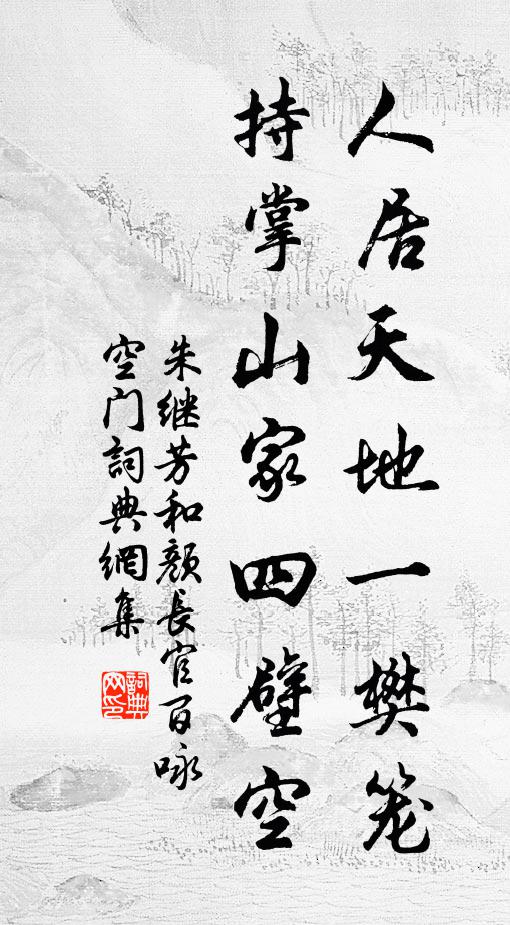 人居天地一樊笼
持掌山家四壁空
朱继芳和颜长官百咏
空门詞典網集
詞典网印